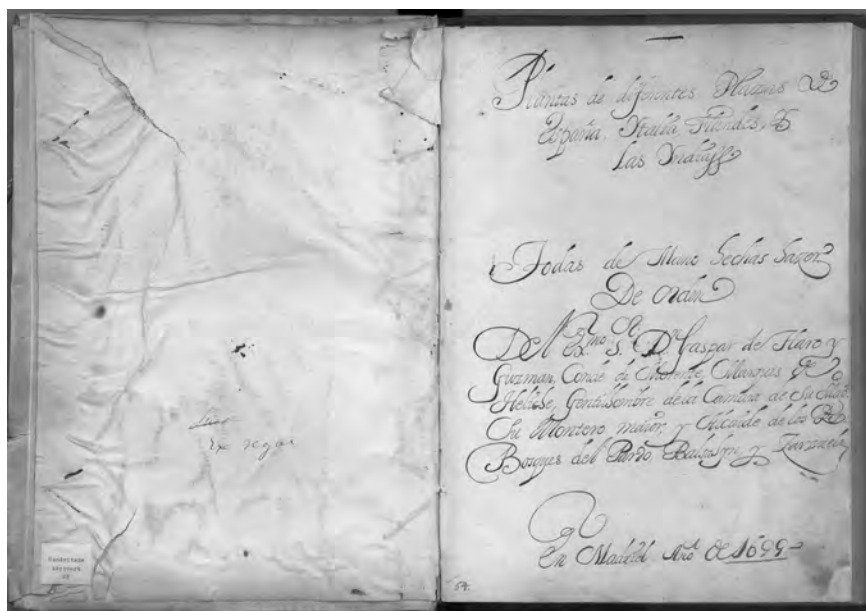 Ex regae
54.
Plantas de diferentes Plazas de
España, Italia, Flandes, &
Las Indias
Todas de Mano hechas hazer
De orden
Del Exmo. S. Dn. Gaspar de Haro y
Guzman, Conde de Morente, Marques de
Heliche, Gentilhombre de la Camara de Su Magd.
Su Montero maior, y Alcaide de los
Bosques del Pardo, Balsayn, y Zarzuela
En Madrid Año de 1655